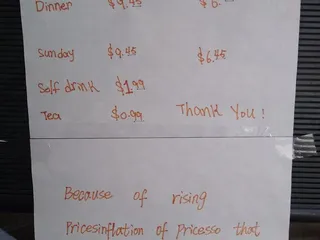 Dinner $9.45 $6.
Sunday $9.45 $6.45
Solf drink $1.99
Tea $0.99 Thank You!
Because of rising
Pricesinflation of pricesso that